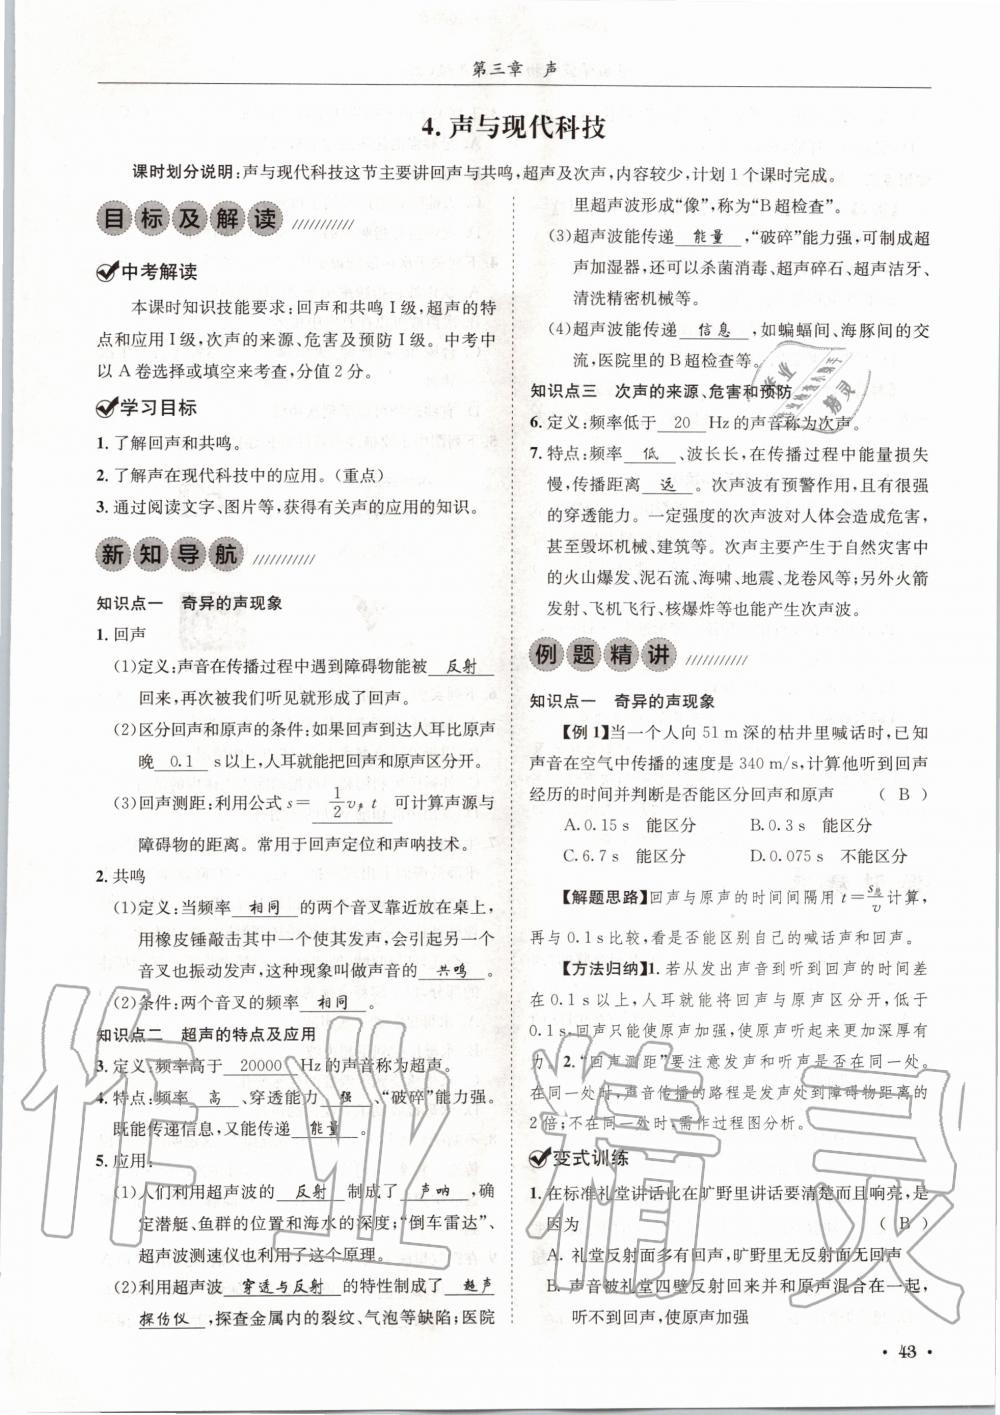 第三章 声
4. 声与现代科技
课时划分说明:声与现代科技这节主要讲回声与共鸣,超声及次声,内容较少,计划1个课时完成。
目标及解读
中考解读
本课时知识技能要求:回声和共鸣Ⅰ级,超声的特
点和应用Ⅰ级,次声的来源、危害及预防Ⅰ级。中考中
以A卷选择或填空来考查,分值2分。
学习目标
1. 了解回声和共鸣。
2. 了解声在现代科技中的应用。(重点)
3. 通过阅读文字、图片等,获得有关声的应用的知识。
新知导航
知识点一 奇异的声现象
1. 回声
(1)定义:声音在传播过程中遇到障碍物能被 反射
回来,再次被我们听见就形成了回声。
(2)区分回声和原声的条件:如果回声到达人耳比原声
晚 0.1 s以上,人耳就能把回声和原声区分开。
(3)回声测距:利用公式s= 1/2 v声t 可计算声源与
障碍物的距离。常用于回声定位和声呐技术。
2. 共鸣
(1)定义:当频率 相同 的两个音叉靠近放在桌上,
用橡皮锤敲击其中一个使其发声,会引起另一个
音叉也振动发声,这种现象叫做声音的 共鸣 。
(2)条件:两个音叉的频率 相同 。
知识点二 超声的特点及应用
3. 定义:频率高于 20000 Hz的声音称为超声。
4. 特点:频率 高 、穿透能力 强 、“破碎”能力强。
既能传递信息,又能传递 能量 。
5. 应用:
(1)人们利用超声波的 反射 制成了 声呐 ,确
定潜艇、鱼群的位置和海水的深度;“倒车雷达”、
超声波测速仪也利用了这个原理。
(2)利用超声波 穿透与反射 的特性制成了 超声
探伤仪 ,探查金属内的裂纹、气泡等缺陷;医院
里超声波形成“像”,称为“B超检查”。
(3)超声波能传递 能量 ,“破碎”能力强,可制成超
声加湿器,还可以杀菌消毒、超声碎石、超声洁牙、
清洗精密机械等。
(4)超声波能传递 信息 ,如蝙蝠间、海豚间的交
流,医院里的B超检查等。
知识点三 次声的来源、危害和预防
6. 定义:频率低于 20 Hz的声音称为次声。
7. 特点:频率 低 、波长长,在传播过程中能量损失
慢,传播距离 远 。次声波有预警作用,且有很强
的穿透能力。一定强度的次声波对人体会造成危害,
甚至毁坏机械、建筑等。次声主要产生于自然灾害中
的火山爆发、泥石流、海啸、地震、龙卷风等,另外火箭
发射、飞机飞行、核爆炸等也能产生次声波。
例题精讲
知识点一 奇异的声现象
【例1】当一个人向51 m深的枯井里喊话时,已知
声音在空气中传播的速度是340 m/s,计算他听到回声
经历的时间并判断是否能区分回声和原声 ( B )
A. 0.15 s 能区分 B. 0.3 s 能区分
C. 6.7 s 能区分 D. 0.075 s 不能区分
【解题思路】回声与原声的时间间隔用 t=s总/v 计算,
再与0.1 s比较,看是否能区别自己的喊话声和回声。
【方法归纳】1. 若从发出声音到听到回声的时间差
在0.1 s以上,人耳就能将回声与原声区分开,低于
0.1 s,回声只能使原声加强,使原声听起来更加深厚有
力。2. “回声测距”要注意发声和听声是否在同一处。
在同一处时,声音传播的路程是发声处到障碍物距离的
2倍;不在同一处时,需作过程图分析。
变式训练
1. 在标准礼堂讲话比在旷野里讲话要清楚而且响亮,是
因为 ( B )
A. 礼堂反射面多有回声,旷野里无反射面无回声
B. 声音被礼堂四壁反射回来并和原声混合在一起,
听不到回声,使原声加强
· 43 ·
作业精灵